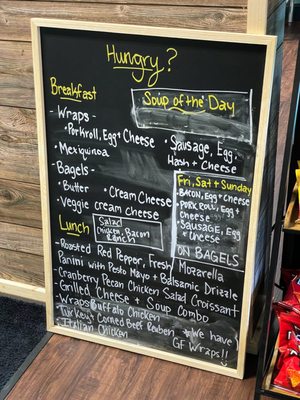 Hungry?
Breakfast
Soup of the Day
- Wraps -
• Porkroll, Egg + Cheese
• Sausage, Egg,
Hash + Cheese
- Mexiquinoa
- Bagels -
• Butter
• Cream Cheese
- Veggie cream cheese
Fri, Sat + Sunday
• Bacon, Egg + Cheese
• Pork Roll, Egg +
Cheese
• Sausage, Egg
+ Cheese
on BAGELS
Lunch
Salad
Chicken, Bacon
Ranch
- Roasted Red Pepper, Fresh Mozarella
Panini with Pesto Mayo + Balsamic Drizzle
- Cranberry Pecan Chicken Salad Croissant
- Grilled Cheese + Soup Combo
- Wraps Buffalo Chicken
- Turkey + Corned Beef Reuben
- Italian Chicken
* We have
GF Wraps!!